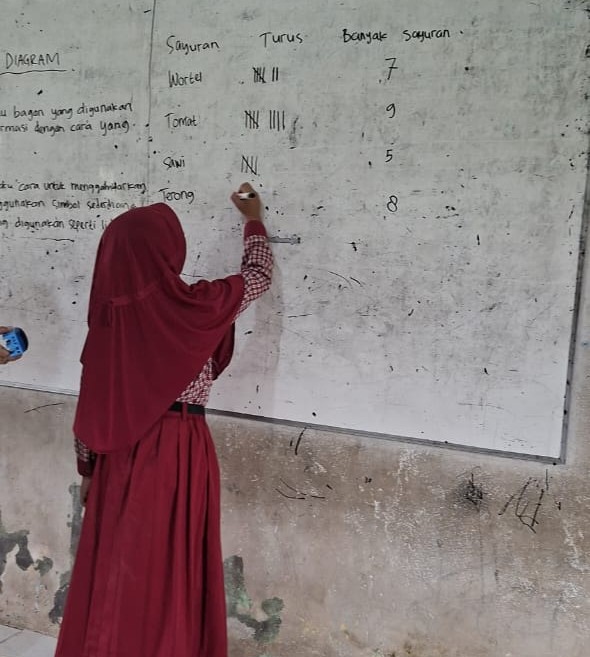 DIAGRAM
u bagan yang digunakan
rmasi dengan cara yang
tu cara untuk menggambarkan
ggunakan simbol sederhana
ng digunakan seperti
Sayuran Turus Banyak sayuran
Wortel 𝍸 || 7
Tomat 𝍸 |||| 9
Sawi 𝍸 5
Terong 8